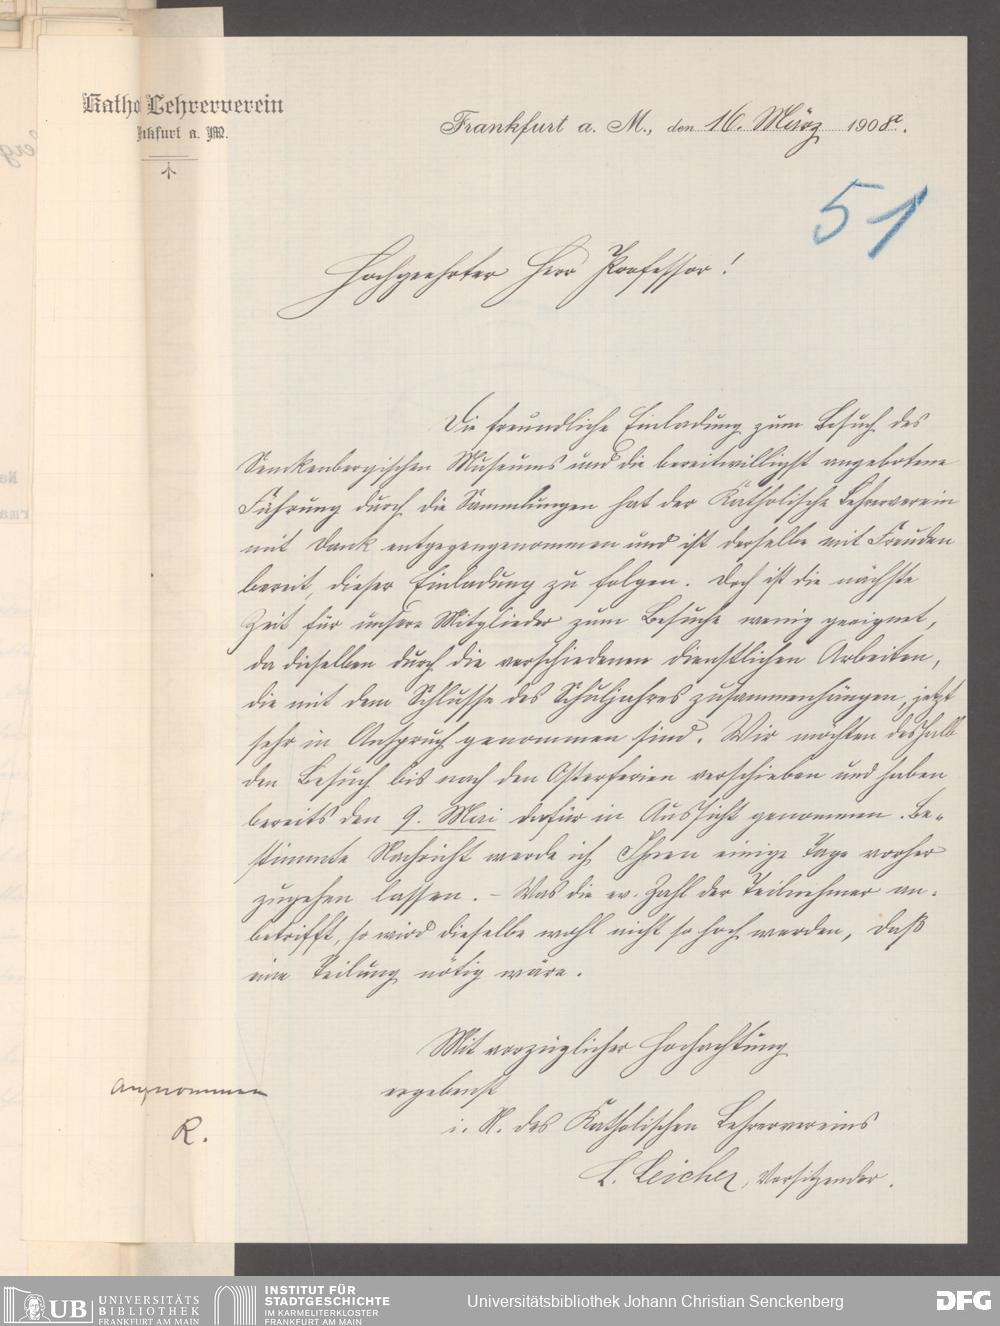 Kath. Lehrerverein
Frankfurt a. M.
Frankfurt a. M., den 16. März 1908.
51
Hochgeehrter Herr Professor!
Die freundliche Einladung zum Besuch des
Senckenbergischen Museums und die bereitwilligst angebotene
Führung durch die Sammlungen hat der Katholische Lehrerverein
mit Dank entgegengenommen und ist derselbe mit Freuden
bereit, dieser Einladung zu folgen. Doch ist die nächste
Zeit für unsere Mitglieder zum Besuche wenig geeignet,
da dieselben durch die verschiedenen dienstlichen Arbeiten,
die mit dem Schlusse des Schuljahres zusammenhängen, jetzt
sehr in Anspruch genommen sind. Wir möchten deshalb
den Besuch bis nach den Osterferien verschieben und haben
bereits den 9. Mai dafür in Aussicht genommen. Be-
stimmte Nachricht werde ich Ihnen einige Tage vorher
zugehen lassen. – Was die ev. Zahl der Teilnehmer an-
betrifft, so wird dieselbe wohl nicht so hoch werden, daß
eine Teilung nötig wäre.
Mit vorzüglicher Hochachtung
ergebenst
i. N. des Katholischen Lehrervereins
L. Leicher, Vorsitzender.
Angenommen
R.
UB UNIVERSITÄTS
BIBLIOTHEK
FRANKFURT AM MAIN
INSTITUT FÜR
STADTGESCHICHTE
IM KARMELITERKLOSTER
FRANKFURT AM MAIN
Universitätsbibliothek Johann Christian Senckenberg
DFG